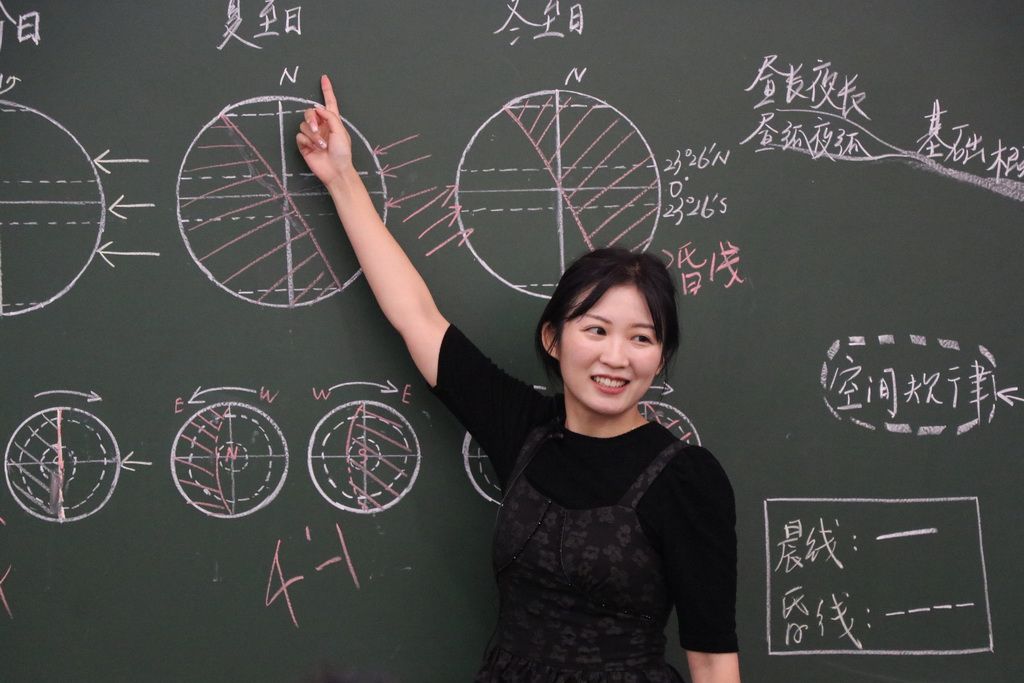 日
夏至日
冬至日
N
N
昼长夜长
昼弧夜弧
基础
23°26′N
0°
23°26′S
昏线
空间规律
E W
W E
N
4-1
晨线：
昏线：